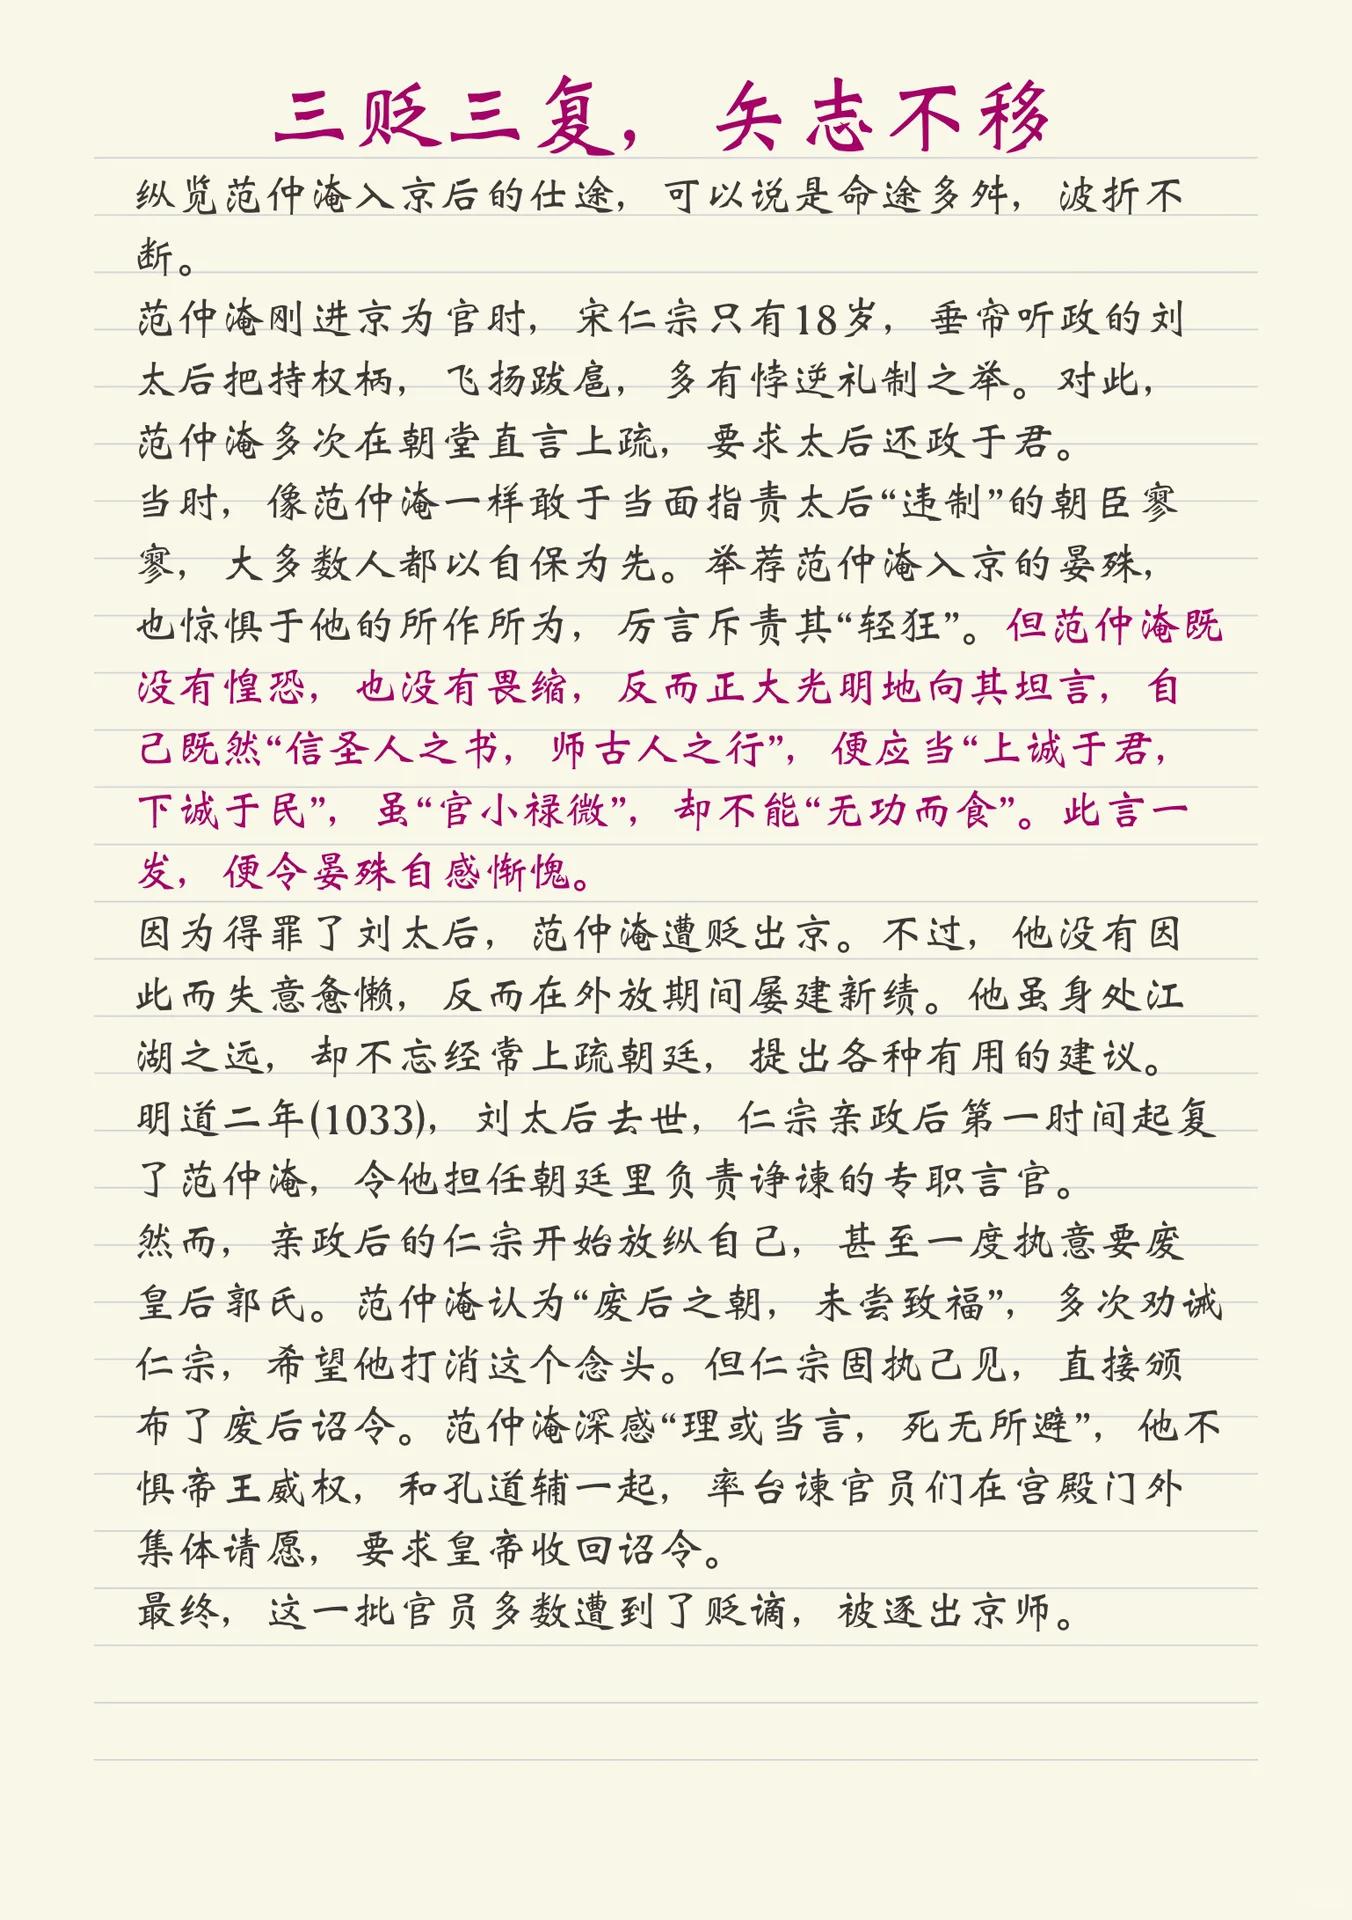 三贬三复，矢志不移
纵览范仲淹入京后的仕途，可以说是命途多舛，波折不
断。
范仲淹刚进京为官时，宋仁宗只有18岁，垂帘听政的刘
太后把持权柄，飞扬跋扈，多有悖逆礼制之举。对此，
范仲淹多次在朝堂直言上疏，要求太后还政于君。
当时，像范仲淹一样敢于当面指责太后“违制”的朝臣寥
寥，大多数人都以自保为先。举荐范仲淹入京的晏殊，
也惊惧于他的所作所为，厉言斥责其“轻狂”。但范仲淹既
没有惶恐，也没有畏缩，反而正大光明地向其坦言，自
己既然“信圣人之书，师古人之行”，便应当“上诚于君，
下诚于民”，虽“官小禄微”，却不能“无功而食”。此言一
发，便令晏殊自感惭愧。
因为得罪了刘太后，范仲淹遭贬出京。不过，他没有因
此而失意惫懒，反而在外放期间屡建新绩。他虽身处江
湖之远，却不忘经常上疏朝廷，提出各种有用的建议。
明道二年(1033)，刘太后去世，仁宗亲政后第一时间起复
了范仲淹，令他担任朝廷里负责诤谏的专职言官。
然而，亲政后的仁宗开始放纵自己，甚至一度执意要废
皇后郭氏。范仲淹认为“废后之朝，未尝致福”，多次劝诫
仁宗，希望他打消这个念头。但仁宗固执己见，直接颁
布了废后诏令。范仲淹深感“理或当言，死无所避”，他不
惧帝王威权，和孔道辅一起，率台谏官员们在宫殿门外
集体请愿，要求皇帝收回诏令。
最终，这一批官员多数遭到了贬谪，被逐出京师。